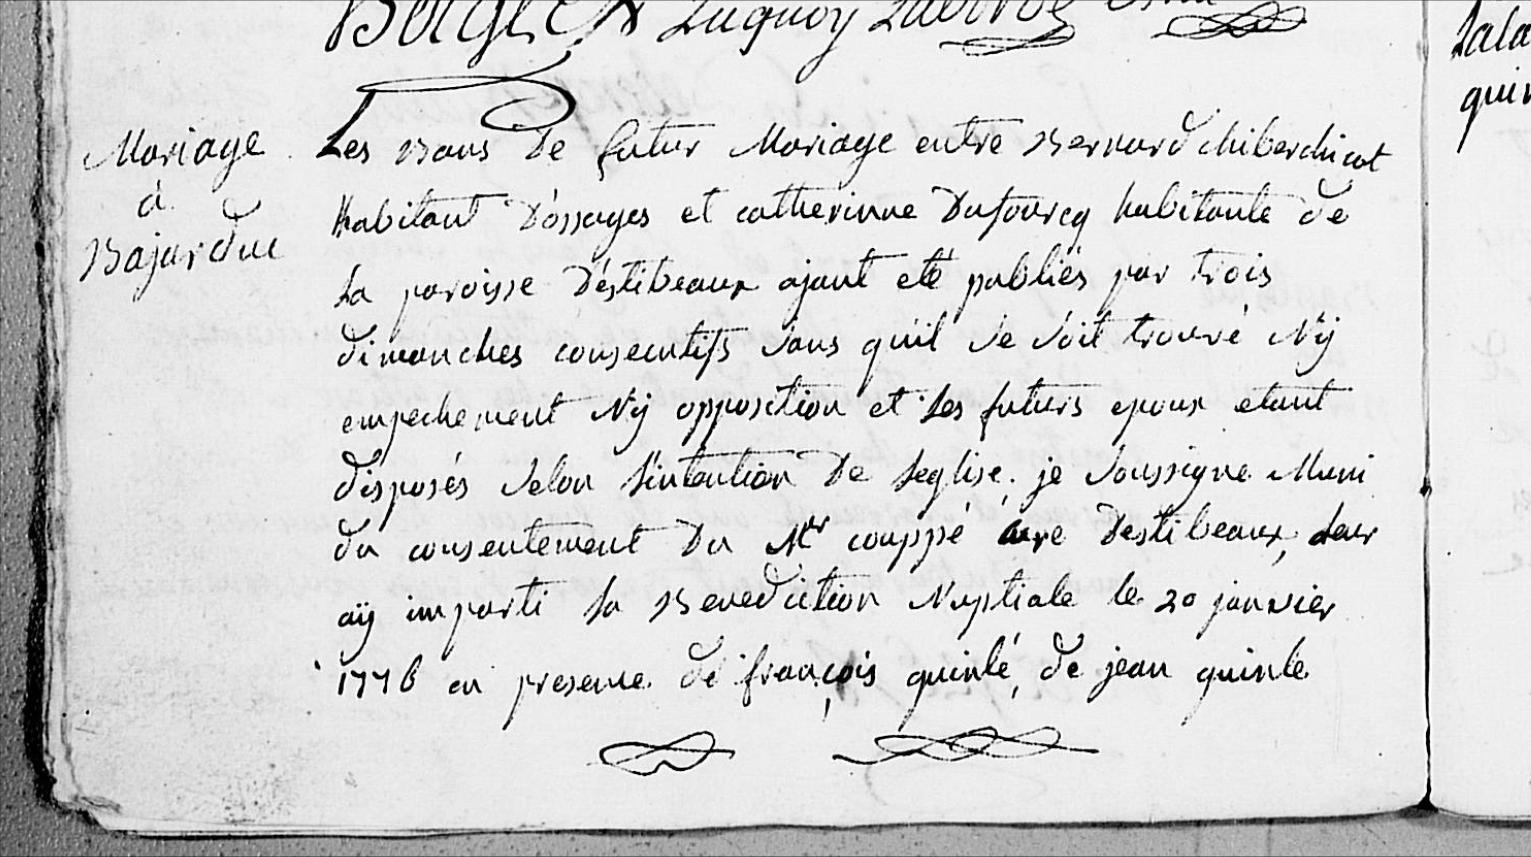 Luquoy Laborde
Mariage
à
Bajarduc
Les Bans de futur Mariage entre Bernard chiberchicot
habitant D'ossages et catherinne Dufourcq habitante de
la paroisse D'éstibeaux ajant eté publiés par trois
dimanches consecutifs sans qu'il se soit trouvé Nÿ
empechement Nÿ opposition et les futurs epoux etant
disposés selon l'intention De leglise. je soussigne Muni
du consentement Du Mr couppé curé Destibeaux, leur
aÿ imparti la Benediction Nuptiale le 20 janvier
1776 en presence de françois quinlé, de jean quinle
Lala
quin